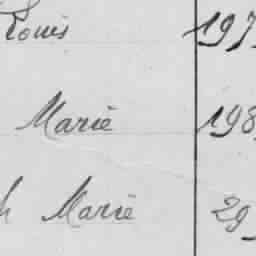 Louis 197
Marie 198
h Marie 29